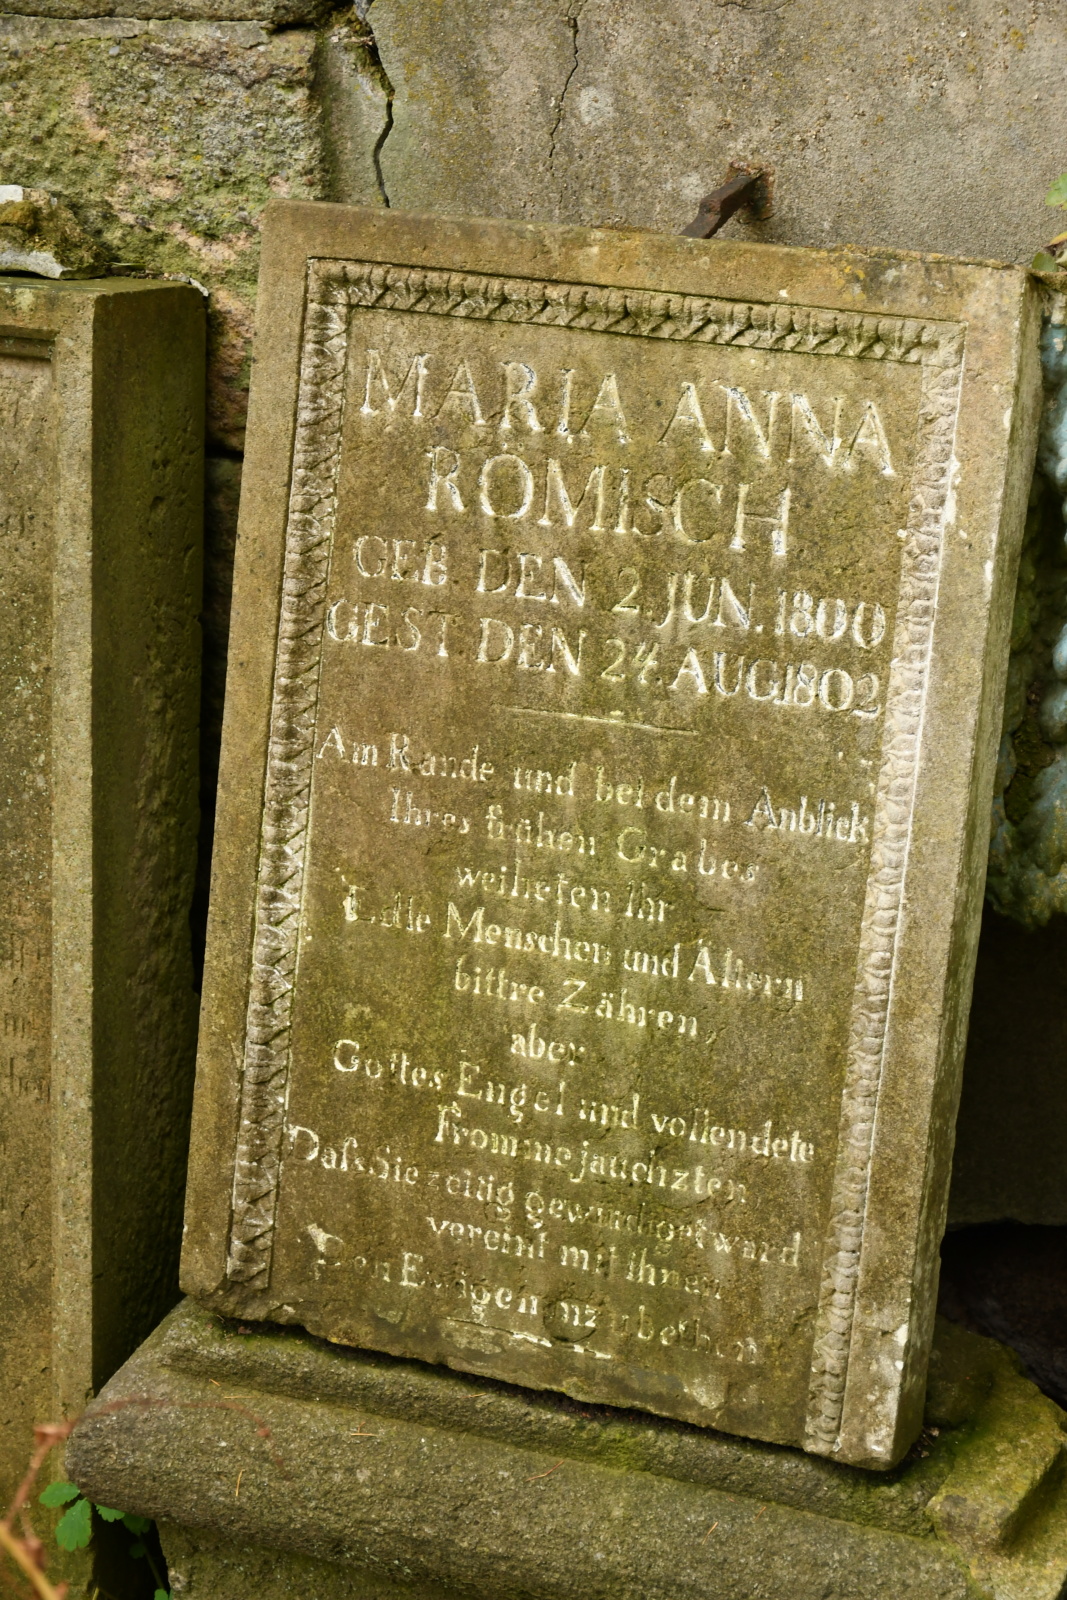 MARIA ANNA
RÖMISCH
GEB DEN 2. JUN. 1800
GEST DEN 24. AUG 1802
Am Rande und bei dem Anblick
Ihres frühen Grabes
weiheten Ihr
Edle Menschen und Ältern
bittre Zähren,
aber
Gottes Engel und vollendete
Fromme jauchzten
Daſs Sie zeitig gewürdiget ward
vereint mit Ihnen
Den Ewigen anzubethen